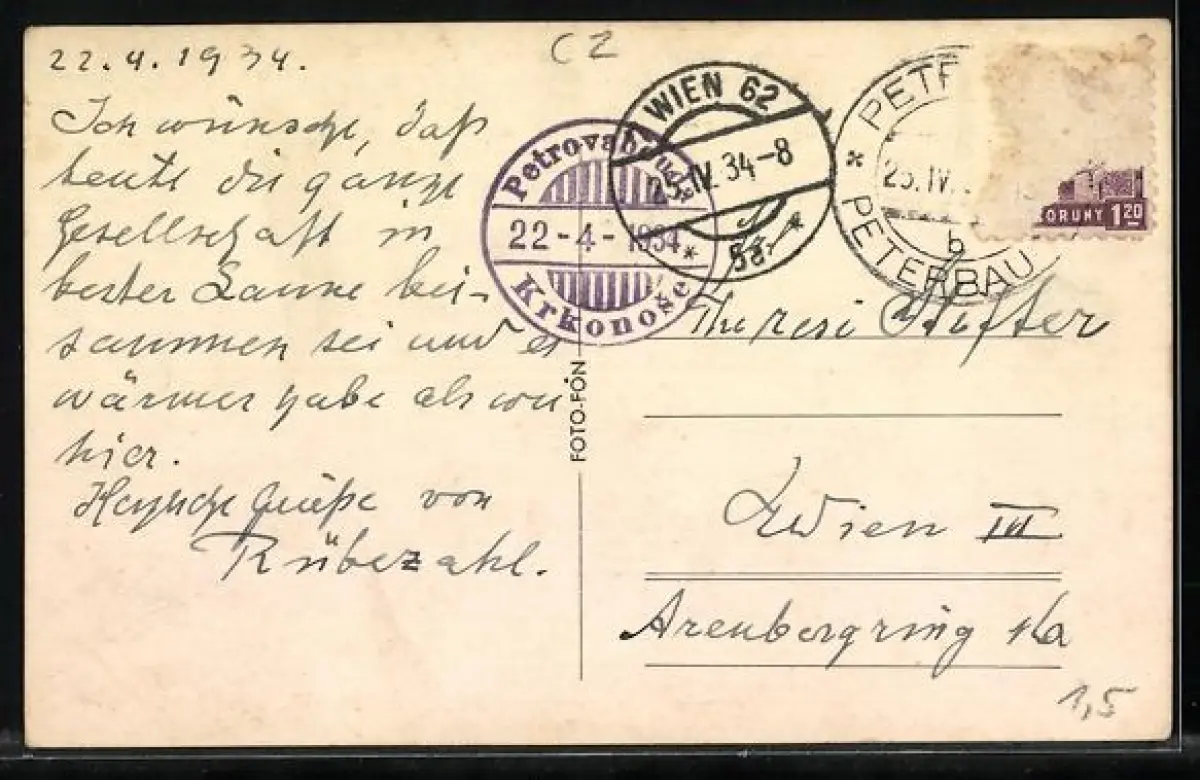 22.4.1934.
Ich wünsche, daß
heute die ganze
Gesellschaft in
bester Laune bei-
sammen sei und es
wärmer habe als wir
hier.
Herzliche Grüße von
Rübezahl.
C2
Petrovabouda
22-4-1934
Krkonoše
WIEN 62
25.IV.34-8
5a
PETR
25.IV.
b
PETERBAU
ORUNY 1 20
FOTO-FON
Theresi
Wien III
Arenbergring
1,5